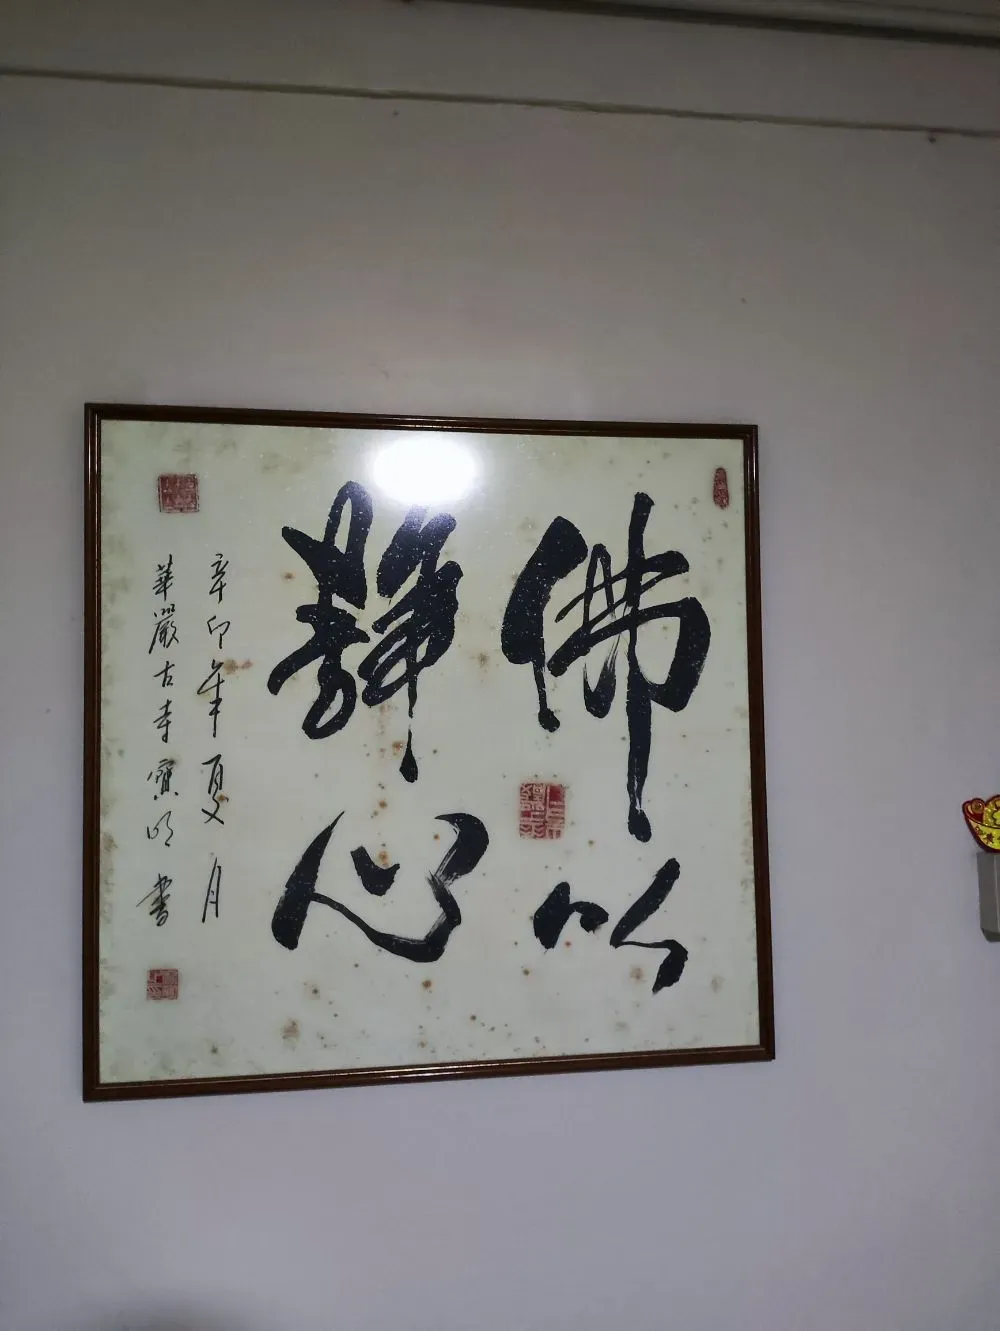 佛以
靜心
辛卯年夏月
華嚴古寺寶明書